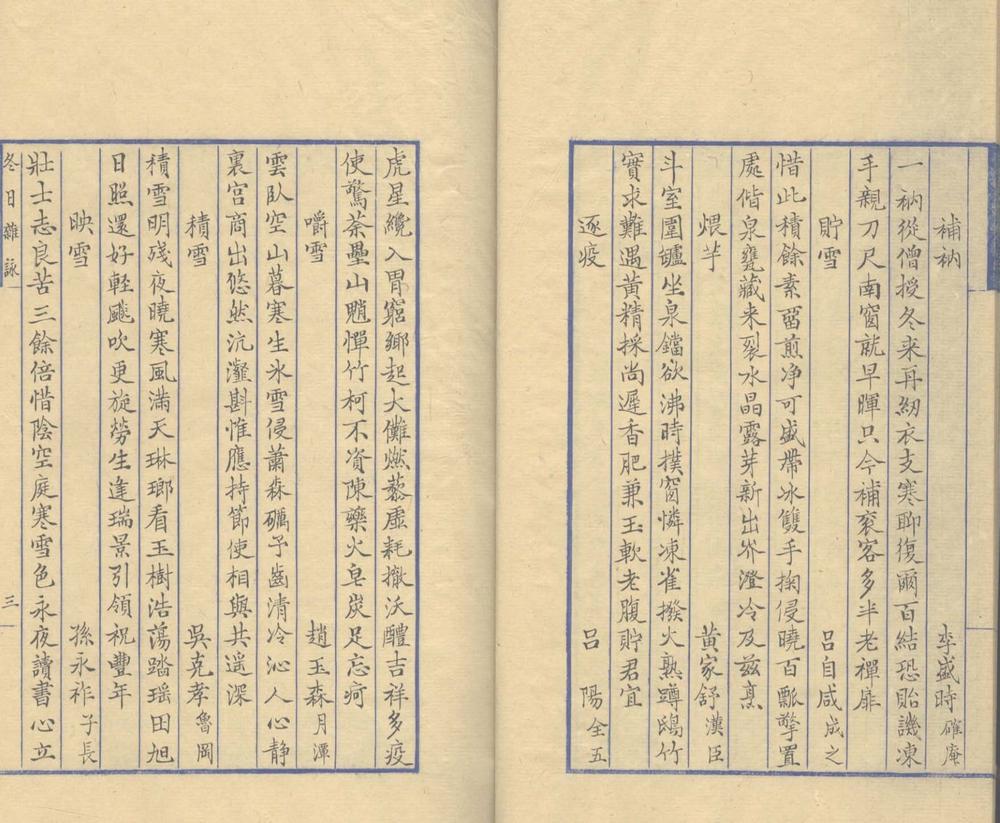 補衲 李盛時確庵
一衲從僧授冬来再紉衣支寒聊復爾百結恐貽譏凍
手親刀尺南窗就早暉只今補衮客多半老禪扉
貯雪 吕自咸成之
惜此積餘素留煎净可盛帶冰雙手掬侵曉百瓢擎置
處偕泉甕藏来裂水晶露芽新出芥澄冷及兹烹
煨芋 黄家舒漢臣
斗室圍罏坐泉鐺欲沸時撲窗憐凍雀撥火熟蹲鴟竹
實求難遇黄精採尚遲香肥兼玉軟老腹貯君宜
逐疫 吕陽全五
虎星纔入胃窮鄉起大儺燃藜虚耗撤沃醴吉祥多疫
使驚荼壘山魈憚竹柯不資陳藥火皂炭足忘疴
嚼雪 趙玉森月潭
雲臥空山暮寒生氷雪侵蕭森礪子齒清冷沁人心静
裏宫商出悠然沆瀣斟惟應持節使相與共遥深
積雪 吳克孝魯岡
積雪明殘夜曉寒風滿天琳瑯看玉樹浩蕩踏瑶田旭
日照還好輕飈吹更旋勞生逢瑞景引領祝豐年
映雪 孫永祚子長
壯士志良苦三餘倍惜陰空庭寒雪色永夜讀書心立
冬日雜詠 三